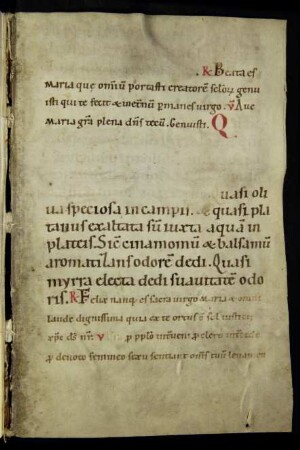 ℟ Beata es
maria que omniũ portasti creatorẽ seculi genu
isti qui te fecit & ineternũ permanes virgo. ℣ Aue
maria grã plena dñs tecũ. Genuisti. Q
uasi oli
ua speciosa in campis. & quasi pla
tanus exaltata sũ iuxta aquã in
plateis. Sic cinamomũ & balsamũ
aromatizans odorẽ dedi. Quasi
myrra electa dedi suauitatẽ odo
ris. ℟ Felix nanque es sacra virgo maria & omni
laude dignissima quia ex te ortus ẽ sol iusticie
xpc ds nr. ℣ pro pplo pro clero
pro deuoto femineo sexu sentiant oms tuũ leuamen